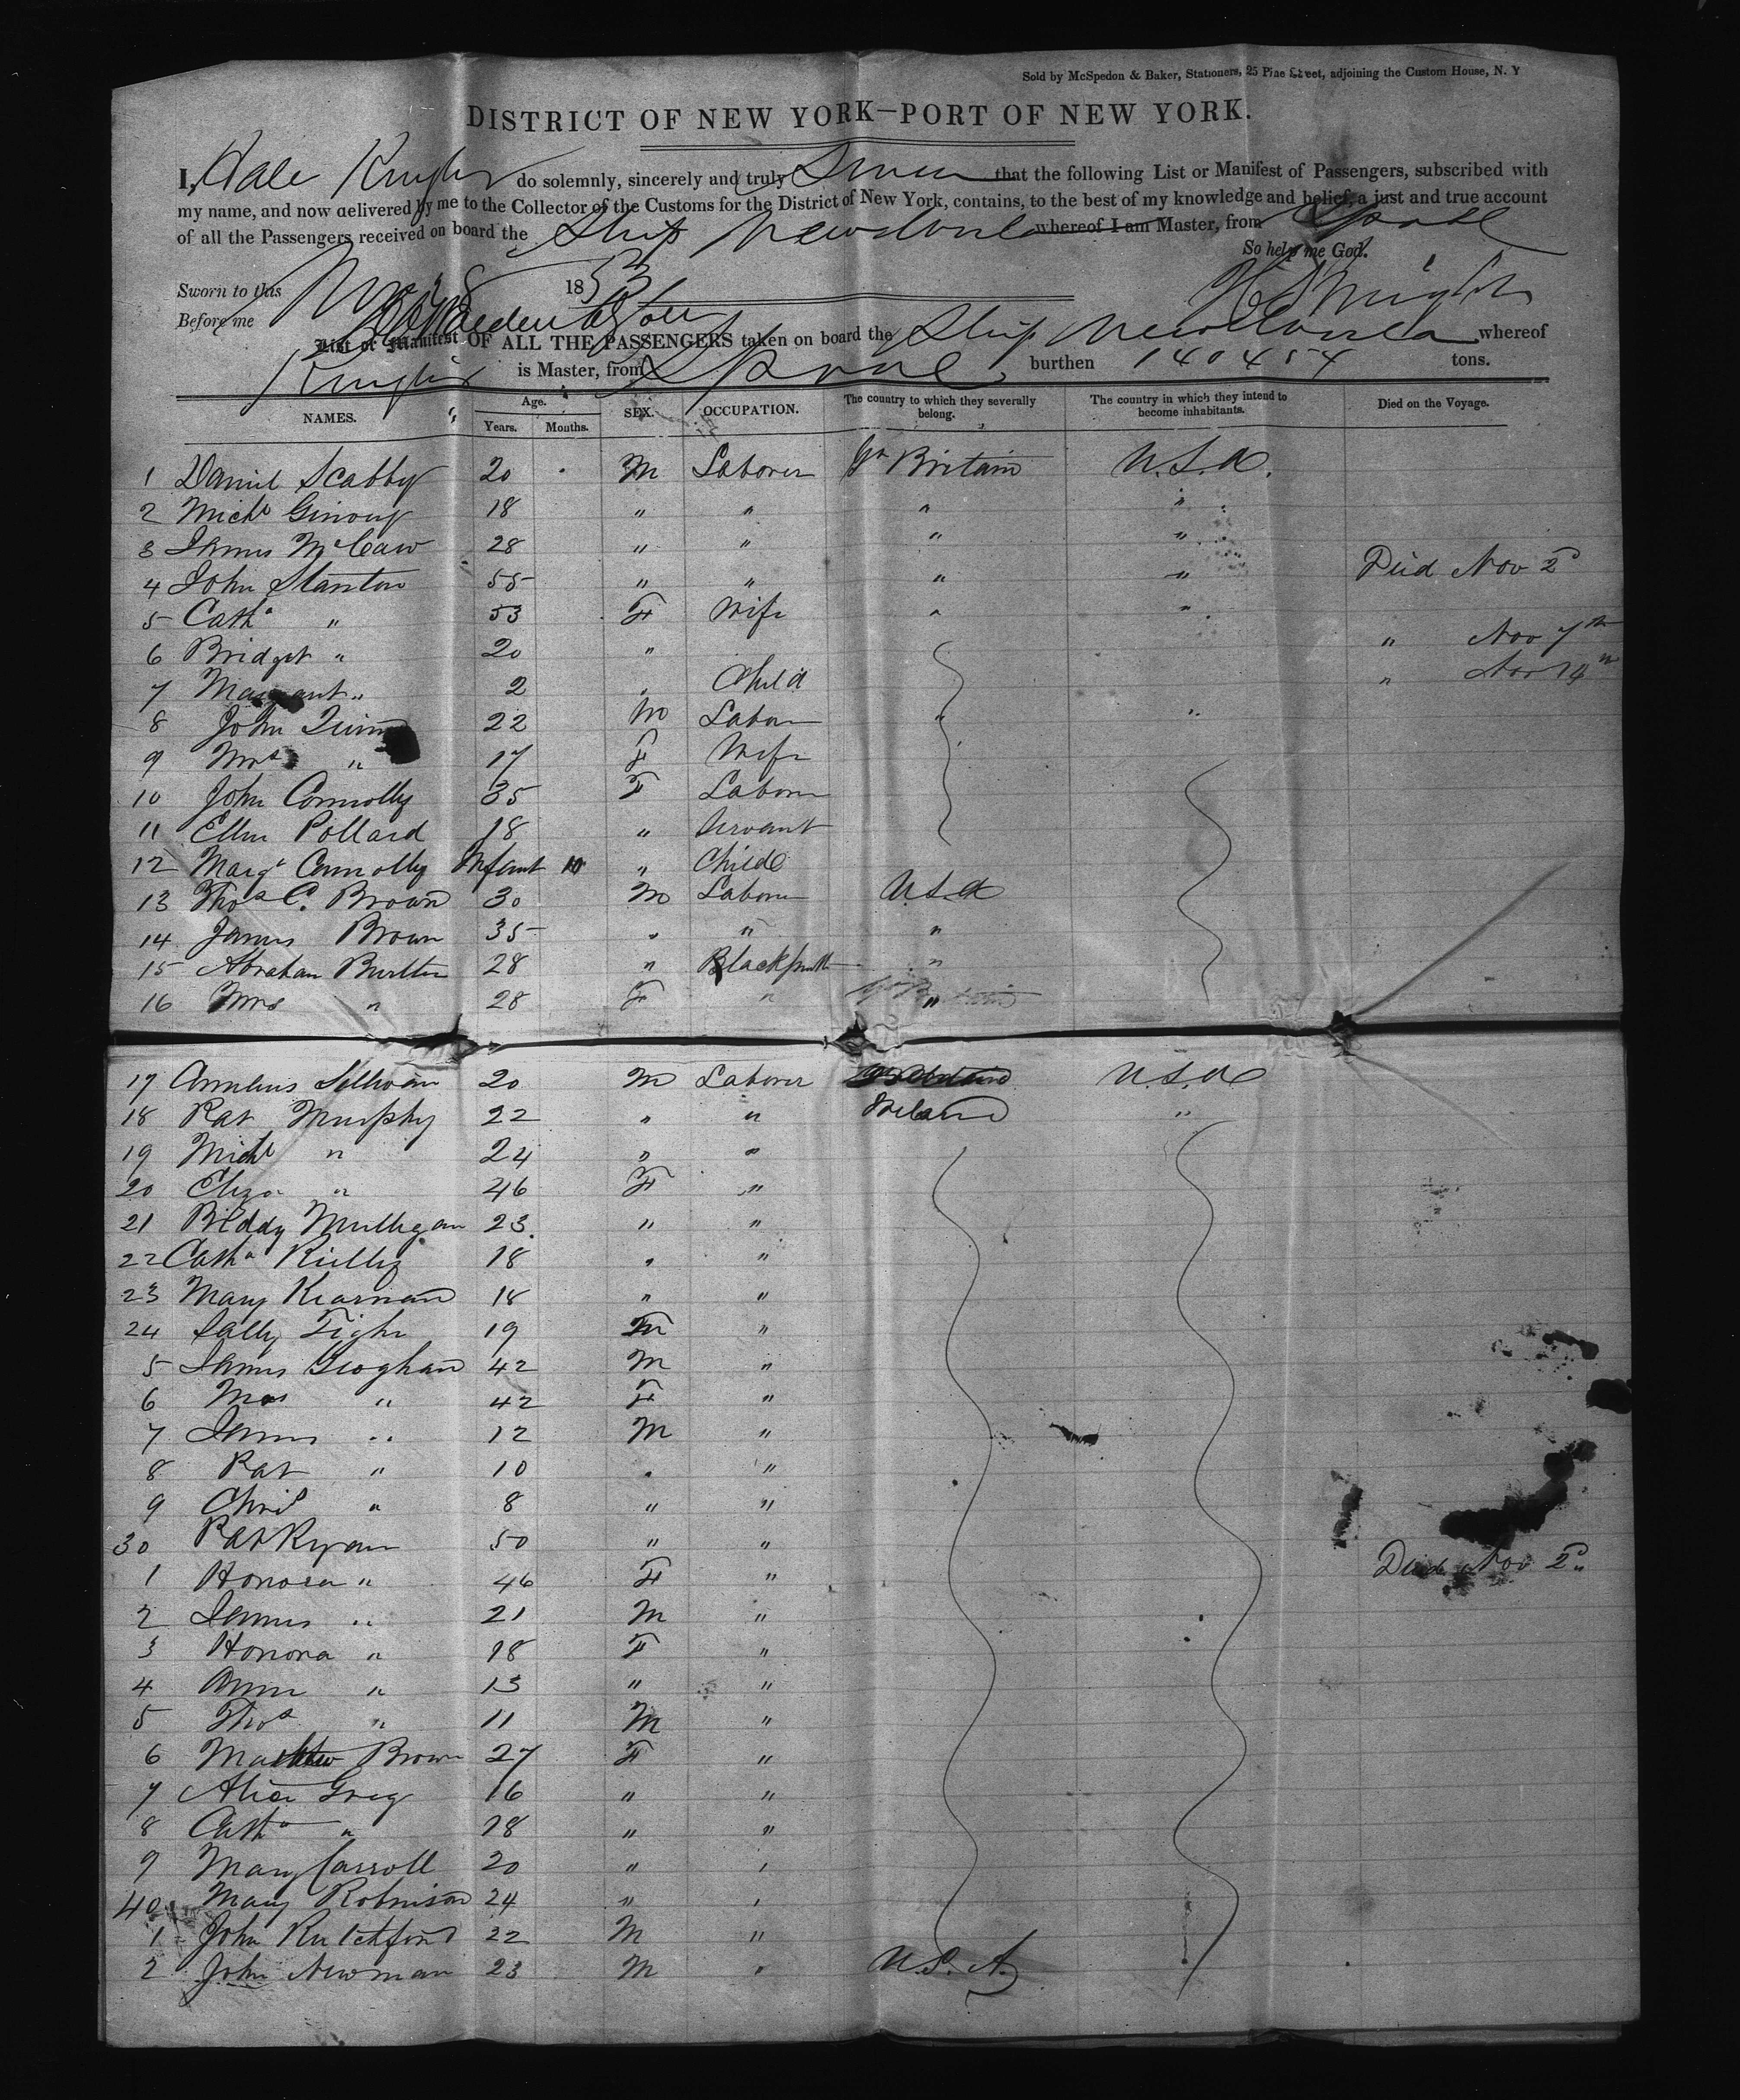 Sold by McSpedon & Baker, Stationers, 25 Pine Street, adjoining the Custom House, N. Y
DISTRICT OF NEW YORK—PORT OF NEW YORK.
I, Hale Knight do solemnly, sincerely and truly Swear that the following List or Manifest of Passengers, subscribed with
my name, and now delivered by me to the Collector of the Customs for the District of New York, contains, to the best of my knowledge and belief, a just and true account
of all the Passengers received on board the Ship whereof I am Master, from Lpool
So help me God.
Sworn to this Nov 1853
H Knight
Before me
List or Manifest OF ALL THE PASSENGERS taken on board the Ship whereof
Knight is Master, from Lpool burthen tons.
NAMES. Age. Years. Mouths. SEX. OCCUPATION. The country to which they severally belong. The country in which they intend to become inhabitants. Died on the Voyage.
1 Daniel Scabby 20 M Laborer Gr Britain U.S.A.
2 Michl 18 " " " "
3 James McCaw 28 " " " "
4 John Stanton 55 " " " " Died Nov 2d
5 Cath " 53 F Wife " "
6 Bridget " 20 " " Nov 7th
7 Margaret " 2 " Child " Nov 14th
8 John Quinn 22 M Labor " "
9 Mrs " 17 F Wife
10 John Connolly 35 F Laborer
11 Ellen Pollard 18 " Servant
12 Margt Connolly Infant 10 " Child
13 Thos C. Brown 30 M Laborer U.S.A
14 James Brown 35 " " "
15 Abraham 28 " Blacksmith "
16 Mrs " 28 F " "
17 Sullivan 20 M Laborer U.S.A
18 Pat Murphy 22 " " Ireland "
19 Michl " 24 " "
20 Eliza " 46 F "
21 Biddy Mulligan 23 " "
22 Catha Rielly 18 " "
23 Mary Kiarnan 18 " "
24 Sally Tighe 19 "
5 James Geoghan 42 M "
6 Mrs " 42 F "
7 James " 12 M "
8 Pat " 10 " "
9 " 8 " "
30 Pat Ryan 50 " "
1 Honora " 46 F " Died Nov 2d
2 James " 21 M "
3 Honora " 18 F "
4 Ann " 13 " "
5 Thos " 11 M "
6 Brown 27 F "
7 Alice Greg 16 " "
8 Catha " 18 " "
9 Mary Carroll 20 " "
40 Mary Robinson 24 " "
1 John 22 M "
2 John Newman 23 M " U.S.A.